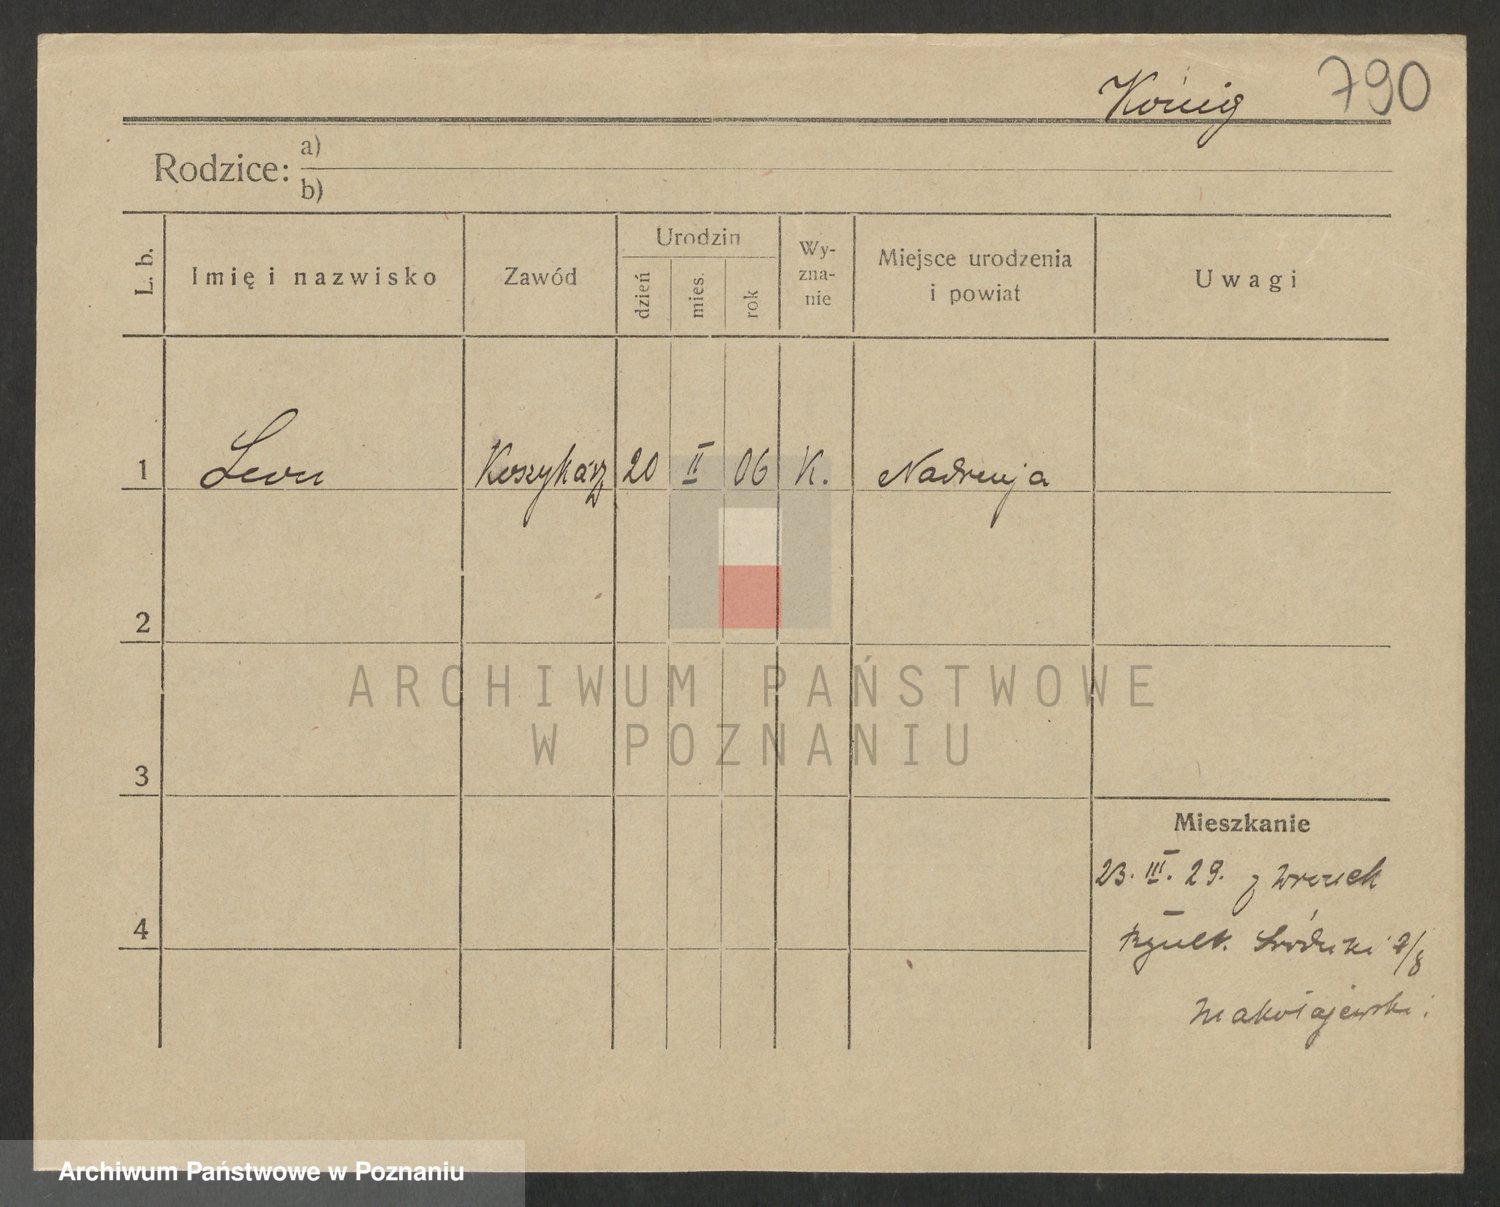 König 790
Rodzice: a)
b)
L. b. Imię i nazwisko Zawód Urodzin dzień mies. rok Wy-zna-nie Miejsce urodzenia i powiat Uwagi
1 Leon Koszykarz 20 II 06 K. Nadrenja
2
ARCHIWUM PAŃSTWOWE
W POZNANIU
3
Mieszkanie
23. III. 29. z Wronek
4
Śródka 7/8
Archiwum Państwowe w Poznaniu